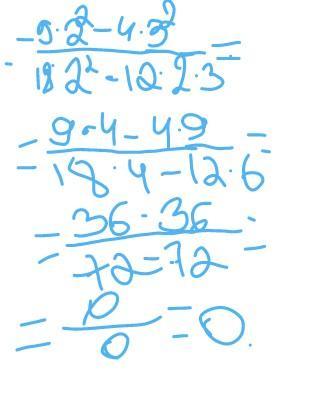 - (9·2² - 4·3²)/(18·2² - 12·2·3) =
= (9·4 - 4·9)/(18·4 - 12·6) =
= (36 - 36)/(72 - 72) =
= 0/0 = 0.